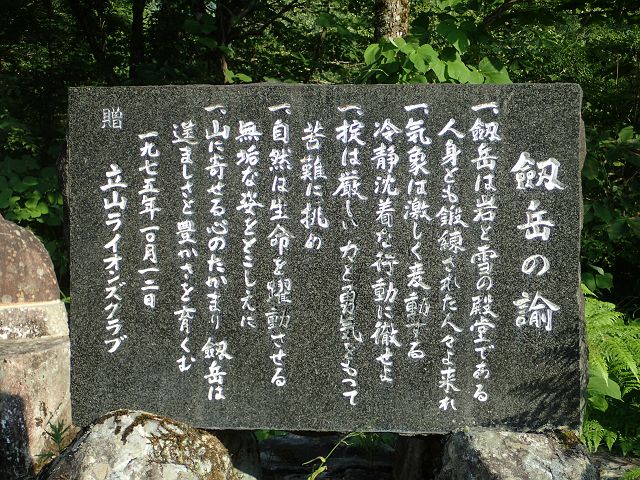 劔岳の諭
一劔岳は岩と雪の殿堂である
人身ども鍛錬された人々よ来れ
一気象は激しく変動する
冷静沈着な行動に徹せよ
一掟は厳しい力と勇気でもって
苦難に挑め
一自然は生命を燿動させる
無垢な姿をとこしえに
一山に寄せる心のたかまり劔岳は
逞ましさと豊かさを育くむ
一九七五年一〇月一二日
贈 立山ライオンズクラブ